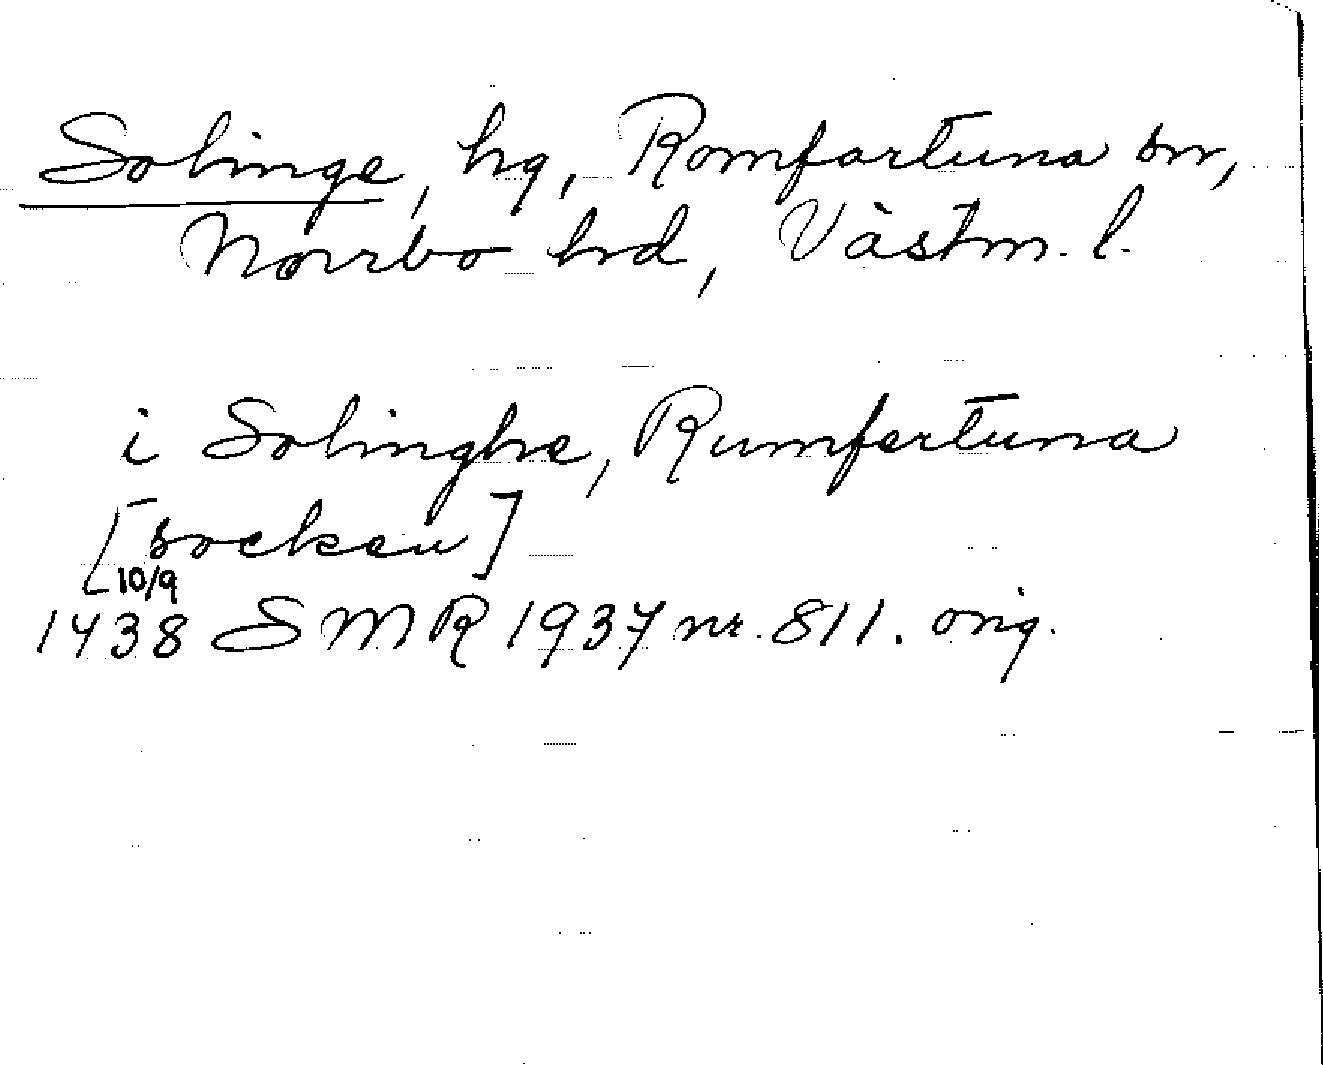 Solinge, hg, Romfartuna sn,
Norrbo hd, Västm. l.
i Solinghe, Rumfertuna
[socken]
10/9
1438 SMR 1937 nr. 811. orig.